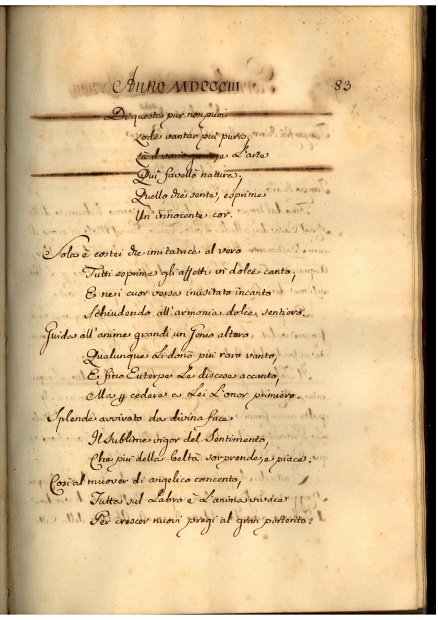 Anno MDCCCIII
83
Di questa pur non puoi
Lode vantar più pura,
L'arte
Qui favellò natura;
Quello che sente, esprime
Un innocente cor.
Sola è costei che imitatrice al vero
Tutti esprime gli affetti in dolce canto,
E nei cuor versa inusitato incanto
Schiudendo all'armonia dolce sentiero.
Guida all'anime grandi un Genio altero
Qualunque Li donò più raro vanto,
E fino Euterpe Le discese accanto,
Ma cedere a Lei L'onor primiero.
Splende avvivato da divina face
Il Sublime vigor del Sentimento,
Che più della beltà sorprende, e piace.
Così al muover di angelico concento,
Tutta sul Labro è L'anima vivace
Per crescer nuovi pregi al gran portento.